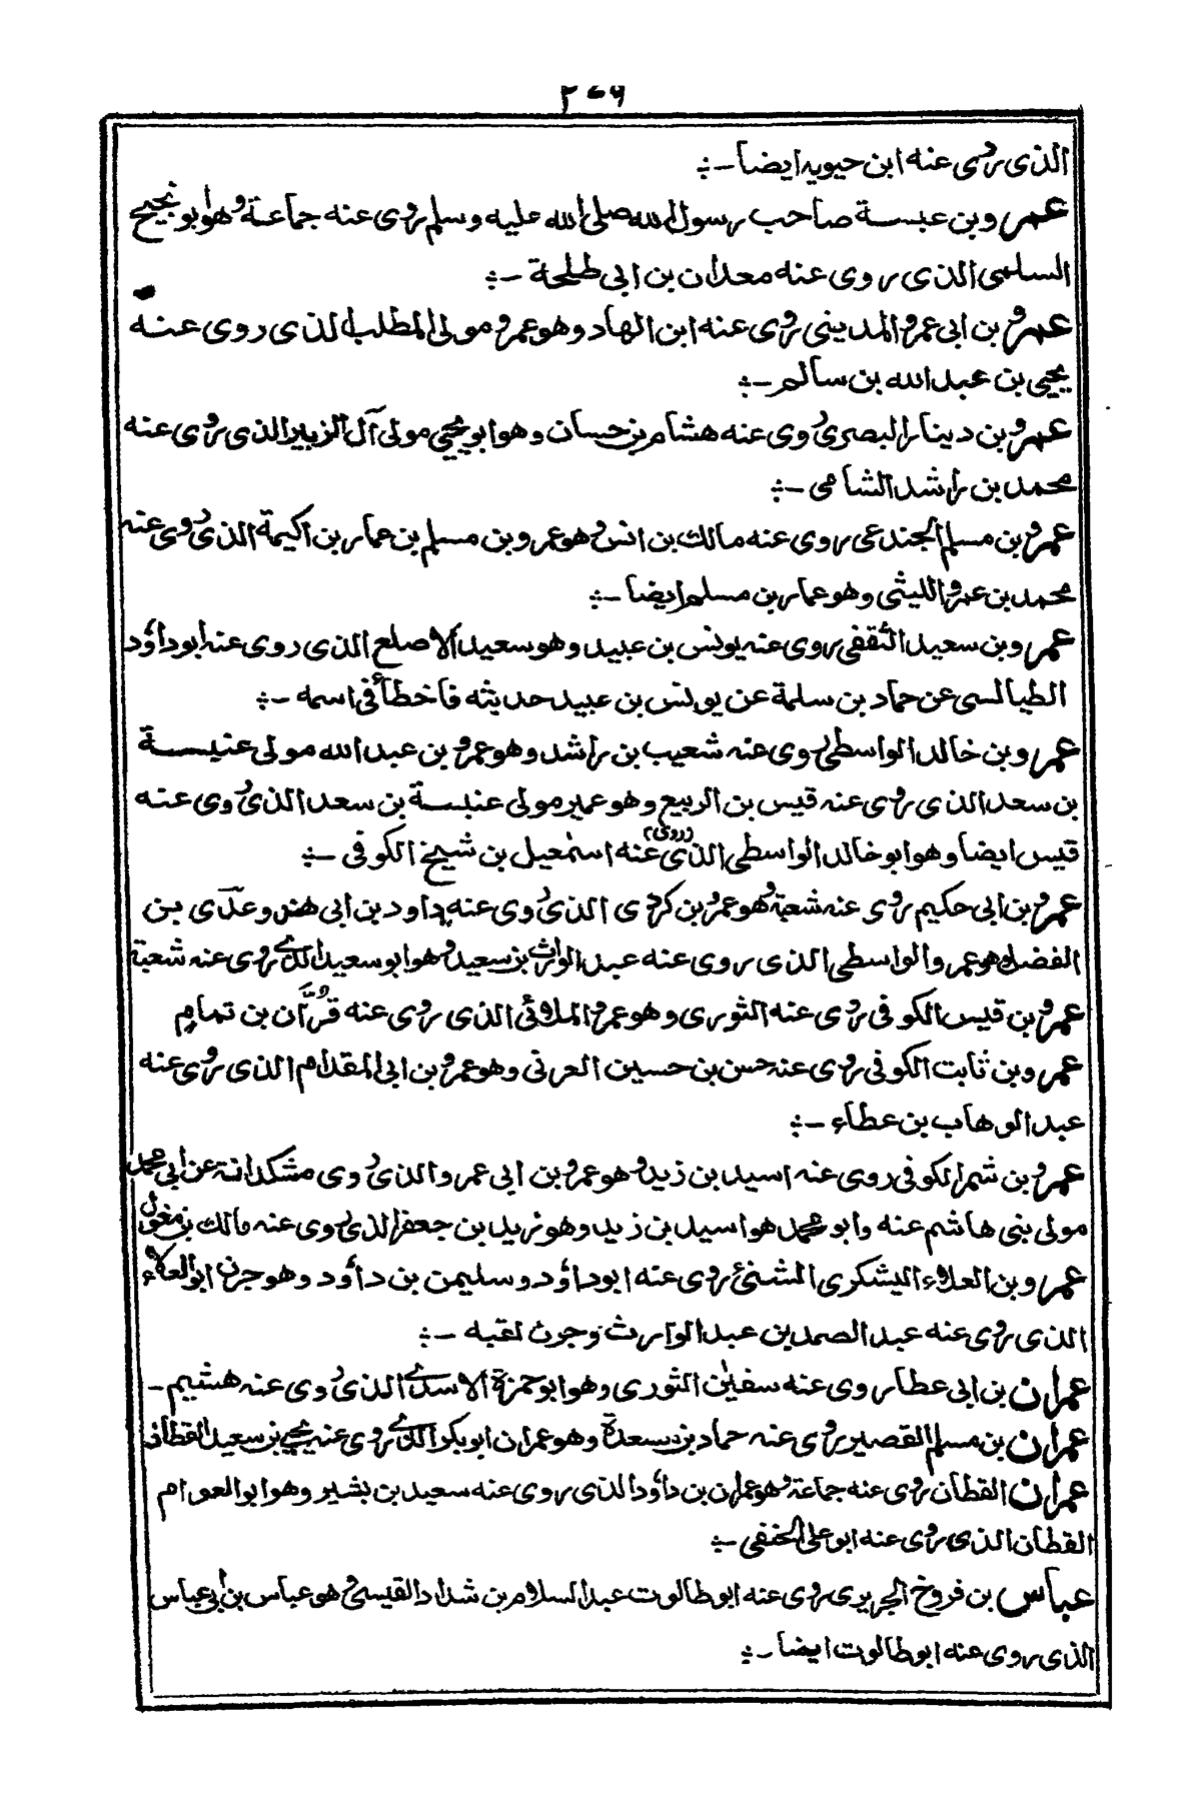 ٢٠٦
الذى روى عنه ابن حيويه ايضا -:
عمرو بن عبسة صاحب رسول الله صلى الله عليه وسلم روى عنه جماعة وهو ابو نجيح
السلمى الذى روى عنه معدان بن ابى طلحة -:
عمرو بن ابى عمرو المدينى روى عنه ابن الهاد وهو عمرو مولى المطلب الذى روى عنه
يحيى بن عبد الله بن سالم -:
عمرو بن دينار البصرى روى عنه هشام بن حسان وهو ابو يحيى مولى آل الزبير الذى روى عنه
محمد بن راشد الشامى -:
عمرو بن مسلم الجندعى روى عنه مالك بن انس وهو عمرو بن مسلم بن عمار بن اكيمة الذى روى عنه
محمد بن عمرو الليثى وهو عمار بن مسلم ايضا -:
عمرو بن سعيد الثقفى روى عنه يونس بن عبيد وهو سعيد الاصلع الذى روى عنه ابو داؤد
الطيالسى عن حماد بن سلمة عن يونس بن عبيد حديثه فاخطأ فى اسمه -:
عمرو بن خالد الواسطى روى عنه شعيب بن راشد وهو عمرو بن عبد الله مولى عنبسة
بن سعد الذى روى عنه قيس بن الربيع وهو عمير مولى عنبسة بن سعد الذى روى عنه
قيس ايضا وهو ابو خالد الواسطى الذى (روى) عنه اسمٰعيل بن شيخ الكوفى -:
عمرو بن ابى حكيم روى عنه شعبة وهو عمرو بن كردى الذى روى عنه داود بن ابى هند وعدّى بن
الفضل وهو عمرو الواسطى الذى روى عنه عبد الوارث بن سعيد وهو ابو سعيد الذى روى عنه شعبة
عمرو بن قيس الكوفى روى عنه الثورى وهو عمرو الملائى الذى روى عنه قُرّان بن تمام
عمرو بن ثابت الكوفى روى عنه حسن بن حسين العرنى وهو عمرو بن ابى المقدام الذى روى عنه
عبد الوهاب بن عطاء -:
عمرو بن شمر الكوفى روى عنه اسيد بن زيد وهو عمرو بن ابى عمرو الذى روى مشكدانة عن ابى محمد
مولى بنى هاشم عنه وابو محمد هو اسيد بن زيد وهو نزيد بن جعفر الذى روى عنه مالك بن مغول
عمرو بن العلاء اليشكرى الشنئ روى عنه ابو داؤد وسليمن بن دأود وهو جرن ابو العلاء
الذى روى عنه عبد الصمد بن عبد الوارث وجرن لقبه -:
عمران بن ابى عطا روى عنه سفيٰن الثورى وهو ابو حمزة الاسدى الذى روى عنه هشيم -
عمران بن مسلم القصير روى عنه حماد بن مسعدة وهو عمران ابو بكر الذى روى عنه يحيى بن سعيد القطان
عمران القطان روى عنه جماعة وهو عمران بن داؤد الذى روى عنه سعيد بن بشير وهو ابو العوام
القطان الذى روى عنه ابو على الحنفى -:
عباس بن فروخ الجريرى روى عنه ابو طالوت عبد السلام بن شداد القيسى وهو عباس بن ابى عباس
الذى روى عنه ابو طالوت ايضا -: